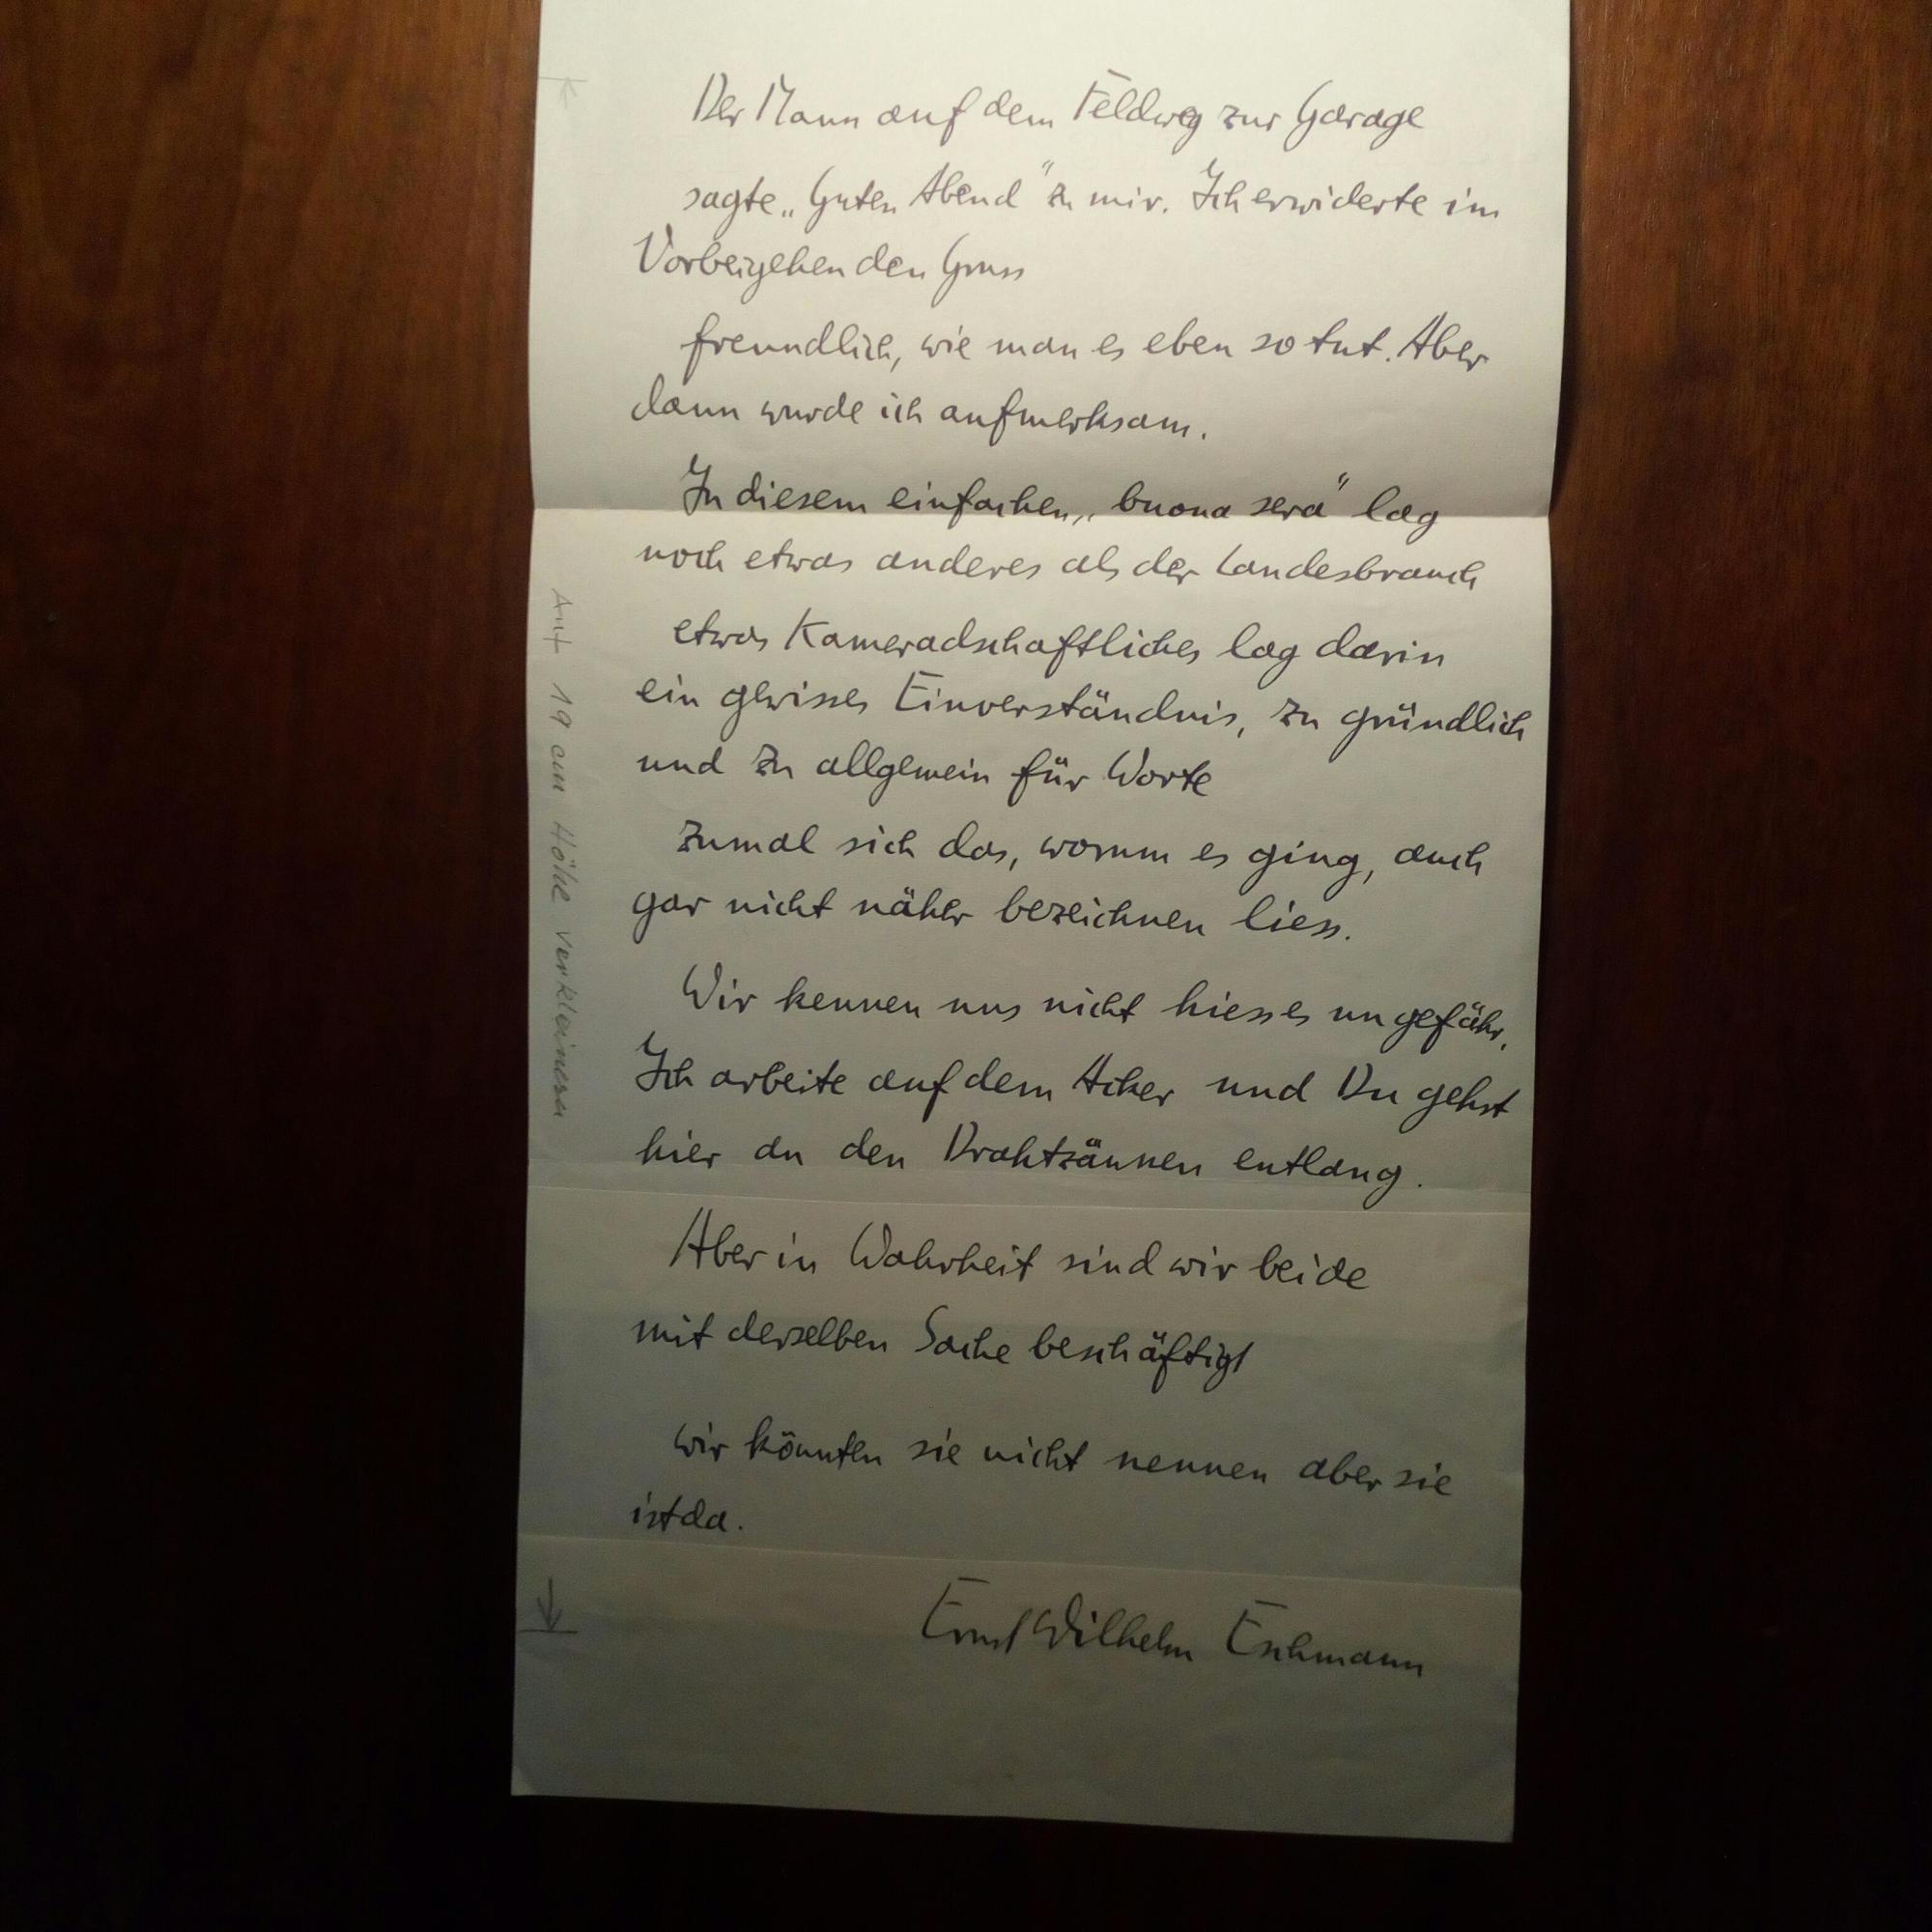 Der Mann auf dem Feldweg zur Garage
sagte „Guten Abend" zu mir. Ich erwiderte im
Vorbeigehen den Gruss
freundlich, wie man es eben so tut. Aber
dann wurde ich aufmerksam.
In diesem einfachen „buona sera" lag
noch etwas anderes als der Landesbrauch
etwas Kameradschaftliches lag darin
ein gewisses Einverständnis, zu gründlich
und zu allgemein für Worte
zumal sich das, worum es ging, auch
gar nicht näher bezeichnen liess.
Wir kennen uns nicht hiess es ungefähr,
Ich arbeite auf dem Acker und Du gehst
hier an den Drahtzäunen entlang.
Aber in Wahrheit sind wir beide
mit derselben Sache beschäftigt
wir könnten sie nicht nennen aber sie
ist da.
Ernst Wilhelm Eschmann
Auf 19 cm Höhe verkleinern